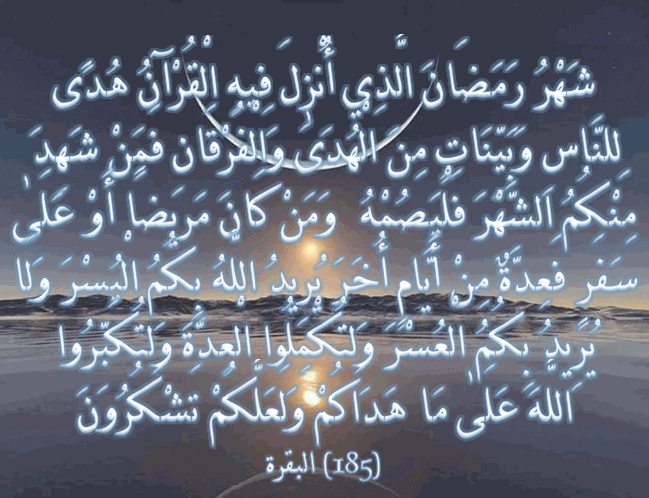 شَهْرُ رَمَضَانَ الَّذِي أُنزِلَ فِيهِ الْقُرْآنُ هُدًى
لِلنَّاسِ وَبَيِّنَاتٍ مِنَ الْهُدَى وَالْفُرْقَانِ فَمَنْ شَهِدَ
مِنْكُمُ الشَّهْرَ فَلْيَصُمْهُ وَمَنْ كَانَ مَرِيضًا أَوْ عَلَى
سَفَرٍ فَعِدَّةٌ مِنْ أَيَّامٍ أُخَرَ يُرِيدُ اللهُ بِكُمُ الْيُسْرَ وَلَا
يُرِيدُ بِكُمُ الْعُسْرَ وَلِتُكْمِلُوا الْعِدَّةَ وَلِتُكَبِّرُوا
اللهَ عَلَى مَا هَدَاكُمْ وَلَعَلَّكُمْ تَشْكُرُونَ
(185) البقرة